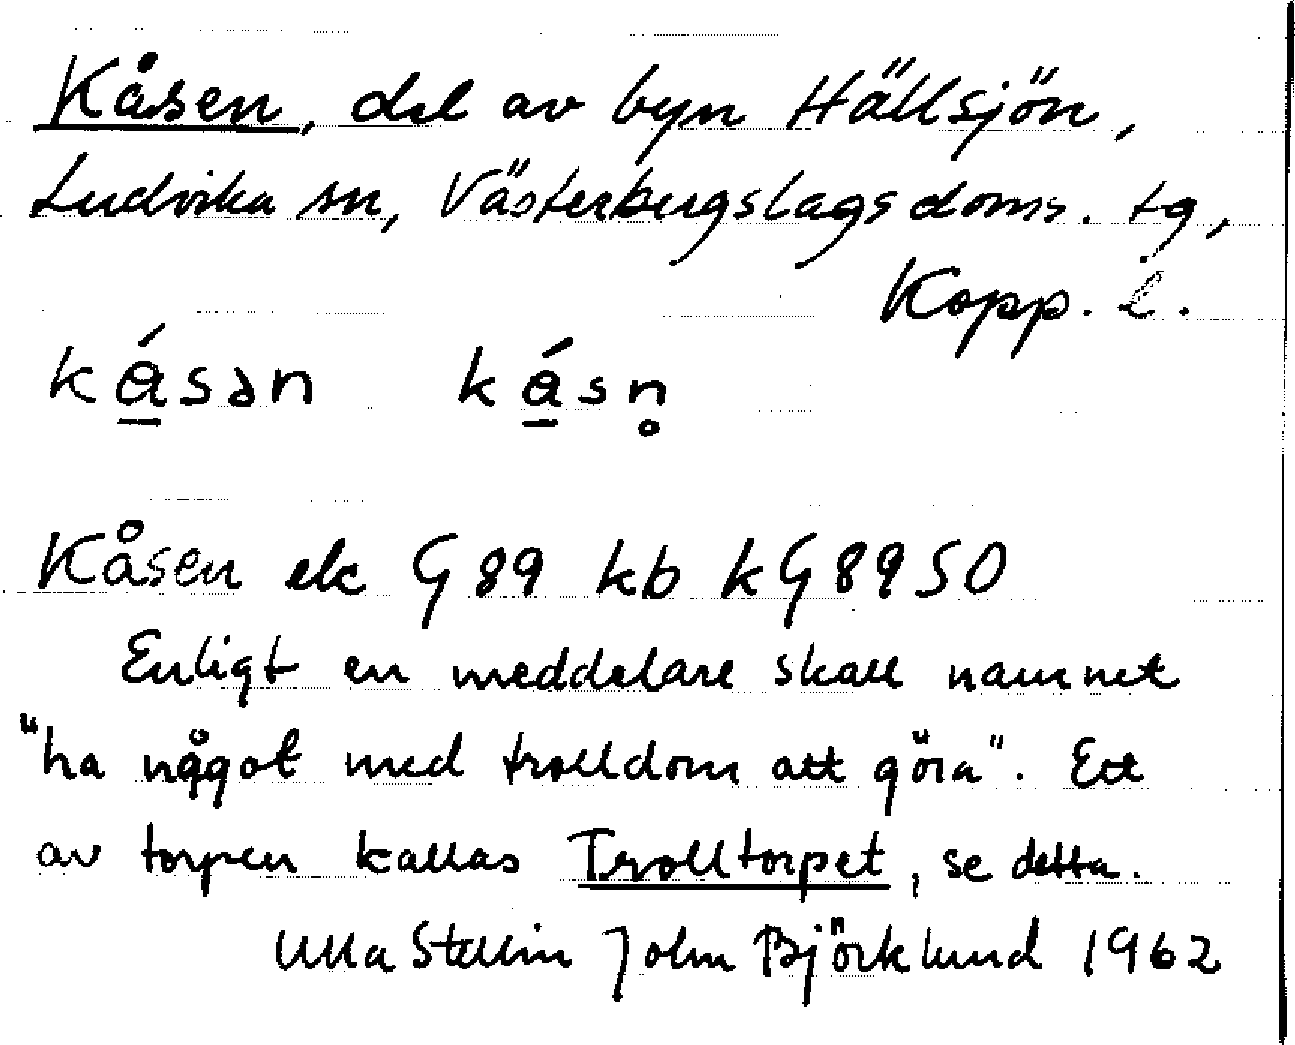 Kåsen, del av byn Hällsjön,
Ludvika sn, Västerbergslags doms. tg,
Kopp. l.
kǻ̱sən kǻ̱sn̥
Kåsen ek G 89 kb kG 89 SO
Enligt en meddelare skall namnet
"ha något med trolldom att göra". Ett
av torpen kallas Trolltorpet, se detta.
Ulla Stellin John Björklund 1962